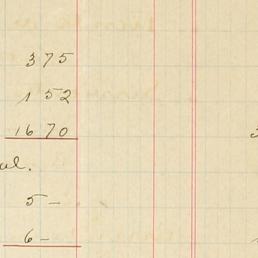 375
1 52
16 70
5 -
6 -